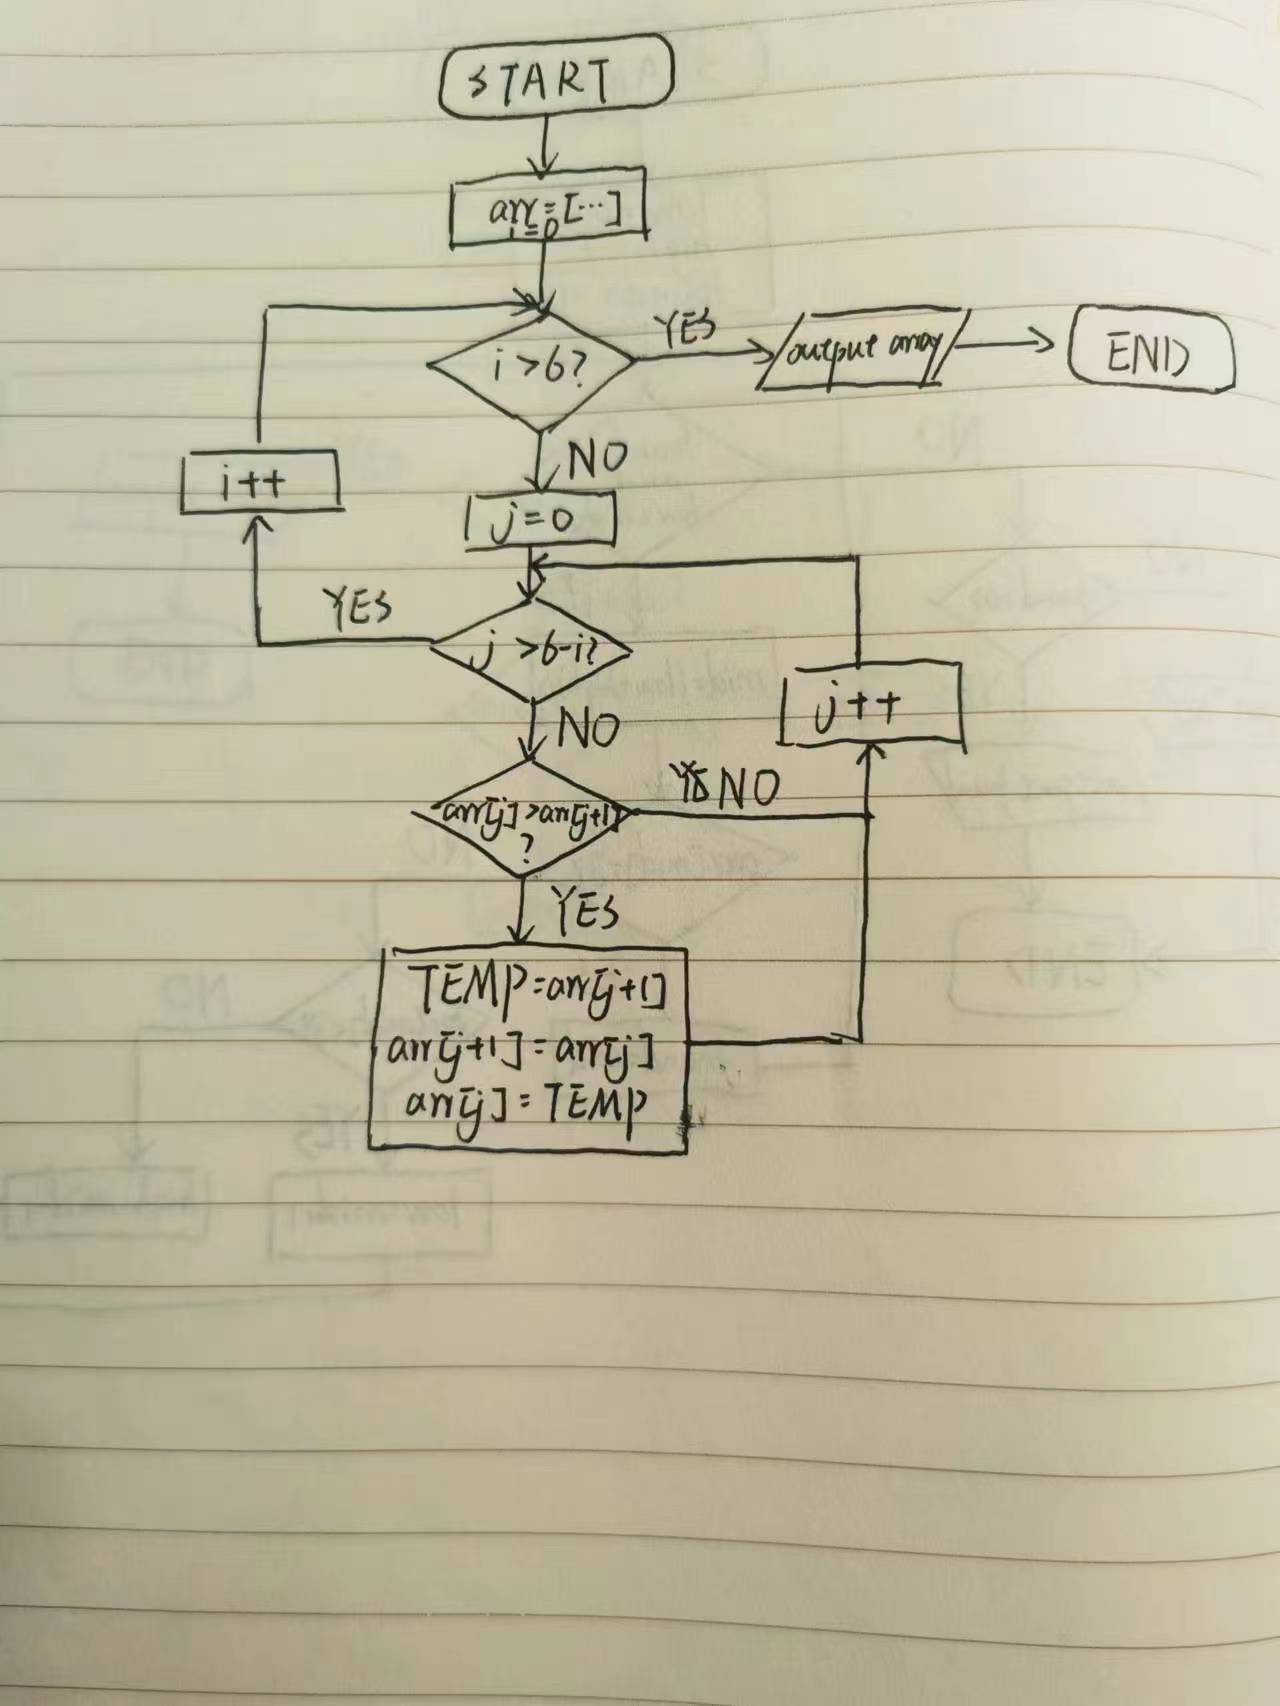 START
arr=[...]
i=0
i>6?
YES
output array
END
NO
i++
j=0
YES
j>6-i?
j++
NO
arr[j]>arr[j+1]
?
NO
YES
TEMP=arr[j+1]
arr[j+1]=arr[j]
arr[j]=TEMP